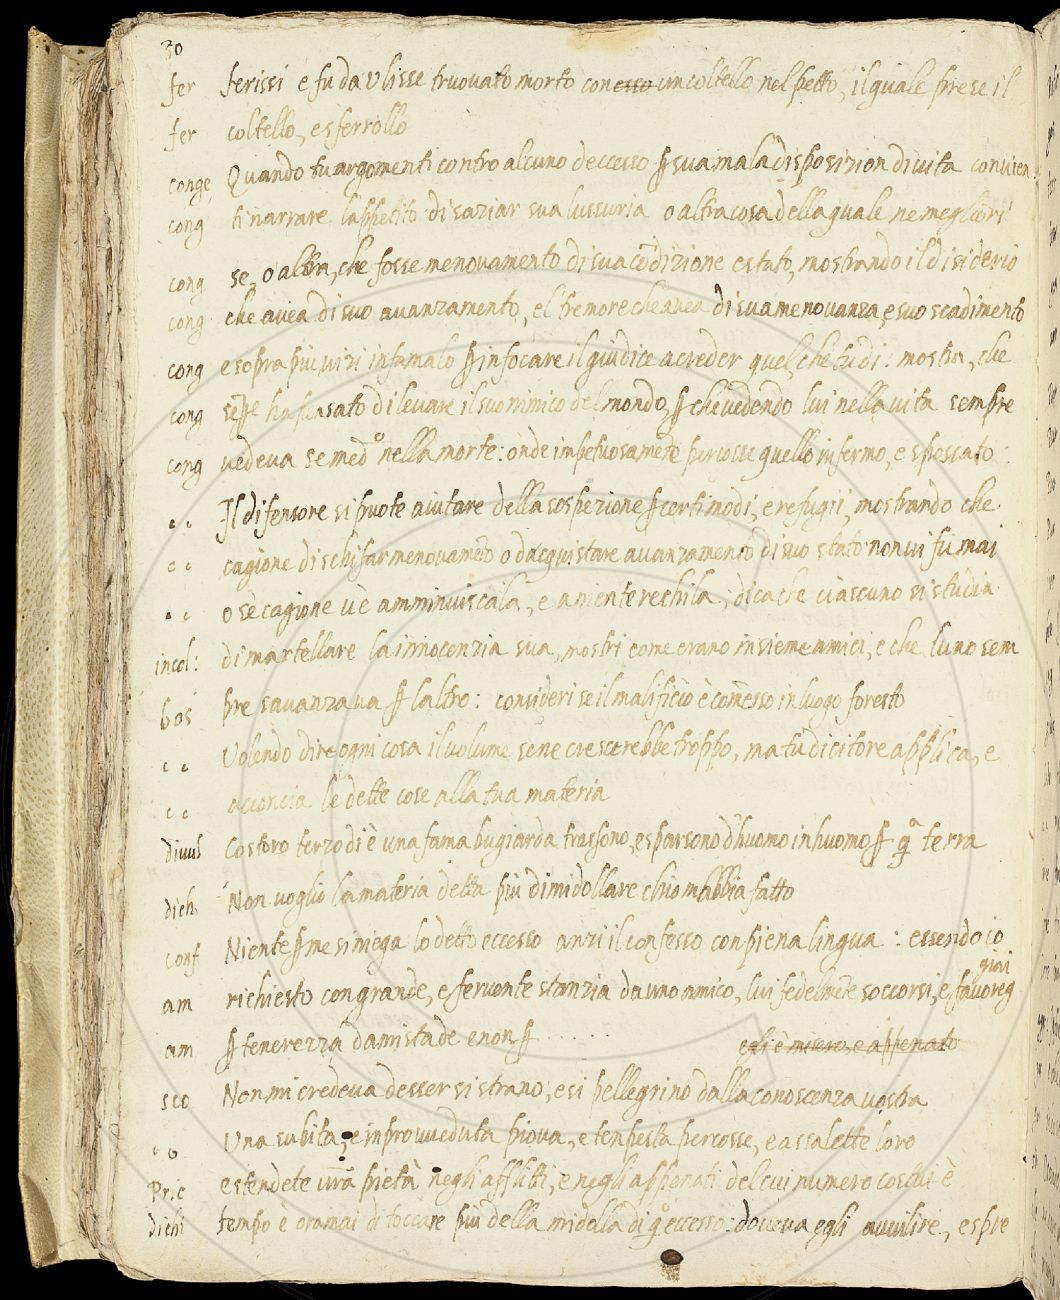 30
fer ferissi e fu da Ulisse truovato morto con esso un coltello nel petto, il quale prese il
fer coltello, e sferrollo
conge Quando tu argomenti contro alcuno deccesso ꝑ sua mala disposizion di vita convien
cong ti narrare l'appetito di saziar sua lussuria o altra cosa della quale ne megliori
cong se, o altra, che fosse menovamento di sua cōdizione e stato, mostrando il disiderio
cong che avea di suo avanzamento, el tremore che avea di sua menovanza, e suo scadimento
cong e sopra piu, vizi infamalo ꝑ infocare il giudice a creder quel che tu di: mostra, che
cong sēpe ha pensato di levare il suo nimico del mondo, ꝑ che vedendo lui nella vita sempre
cong vedeva se medº nella morte: onde impetuosamēte percosse quello infermo, e spossato
" Il difensore si puote aiutare della sospezione ꝑ certi modi, e refugii, mostrando che
" cagione di schifar menovamēto o dacquistare avanzamento di suo stato non vi fu mai
" o sè cagione v'è amminuiscala, e a niente rechila, dica che ciascuno si studia
incol: di martellare la innocenzia sua, mostri come erano insieme amici, e che luno sem
bos pre savanzava ꝑ laltro: consideri se il malificio è comēsso in luogo foresto
" Volendo dire ogni cosa il volume sene crescerebbe troppo, ma tu dicitore applica, e
" acconcia le dette cose alla tua materia
divul Costoro terzo di è una fama bugiarda trassono, e sparsono d'huomo in huomo ꝑ qª terra
dich Non voglio la materia detta più dimidollare chio mabbia fatto
conf Niente ꝑ me si niega lo detto eccesso anzi il confesso con piena lingua: essendo io
giai
am richiesto con grande, e fervente stanzia da uno amico, lui fedelmēte soccorsi, e favoreg
am ꝑ tenerezza damistade e non ꝑ ...... egli è misero, e appenato
sco Non mi credeva desser si strano, e si pellegrino dalla conoscenza vostra
" Una subita, e improvveduta piova, e tenpesta percosse, e assalette loro
Pric estendete vr̄a pietà negli afflitti, e negli appenati del cui numero costui è
dichi tempo è oramai di toccare più della midolla di qº eccesso: doveva egli avvilire, e spre